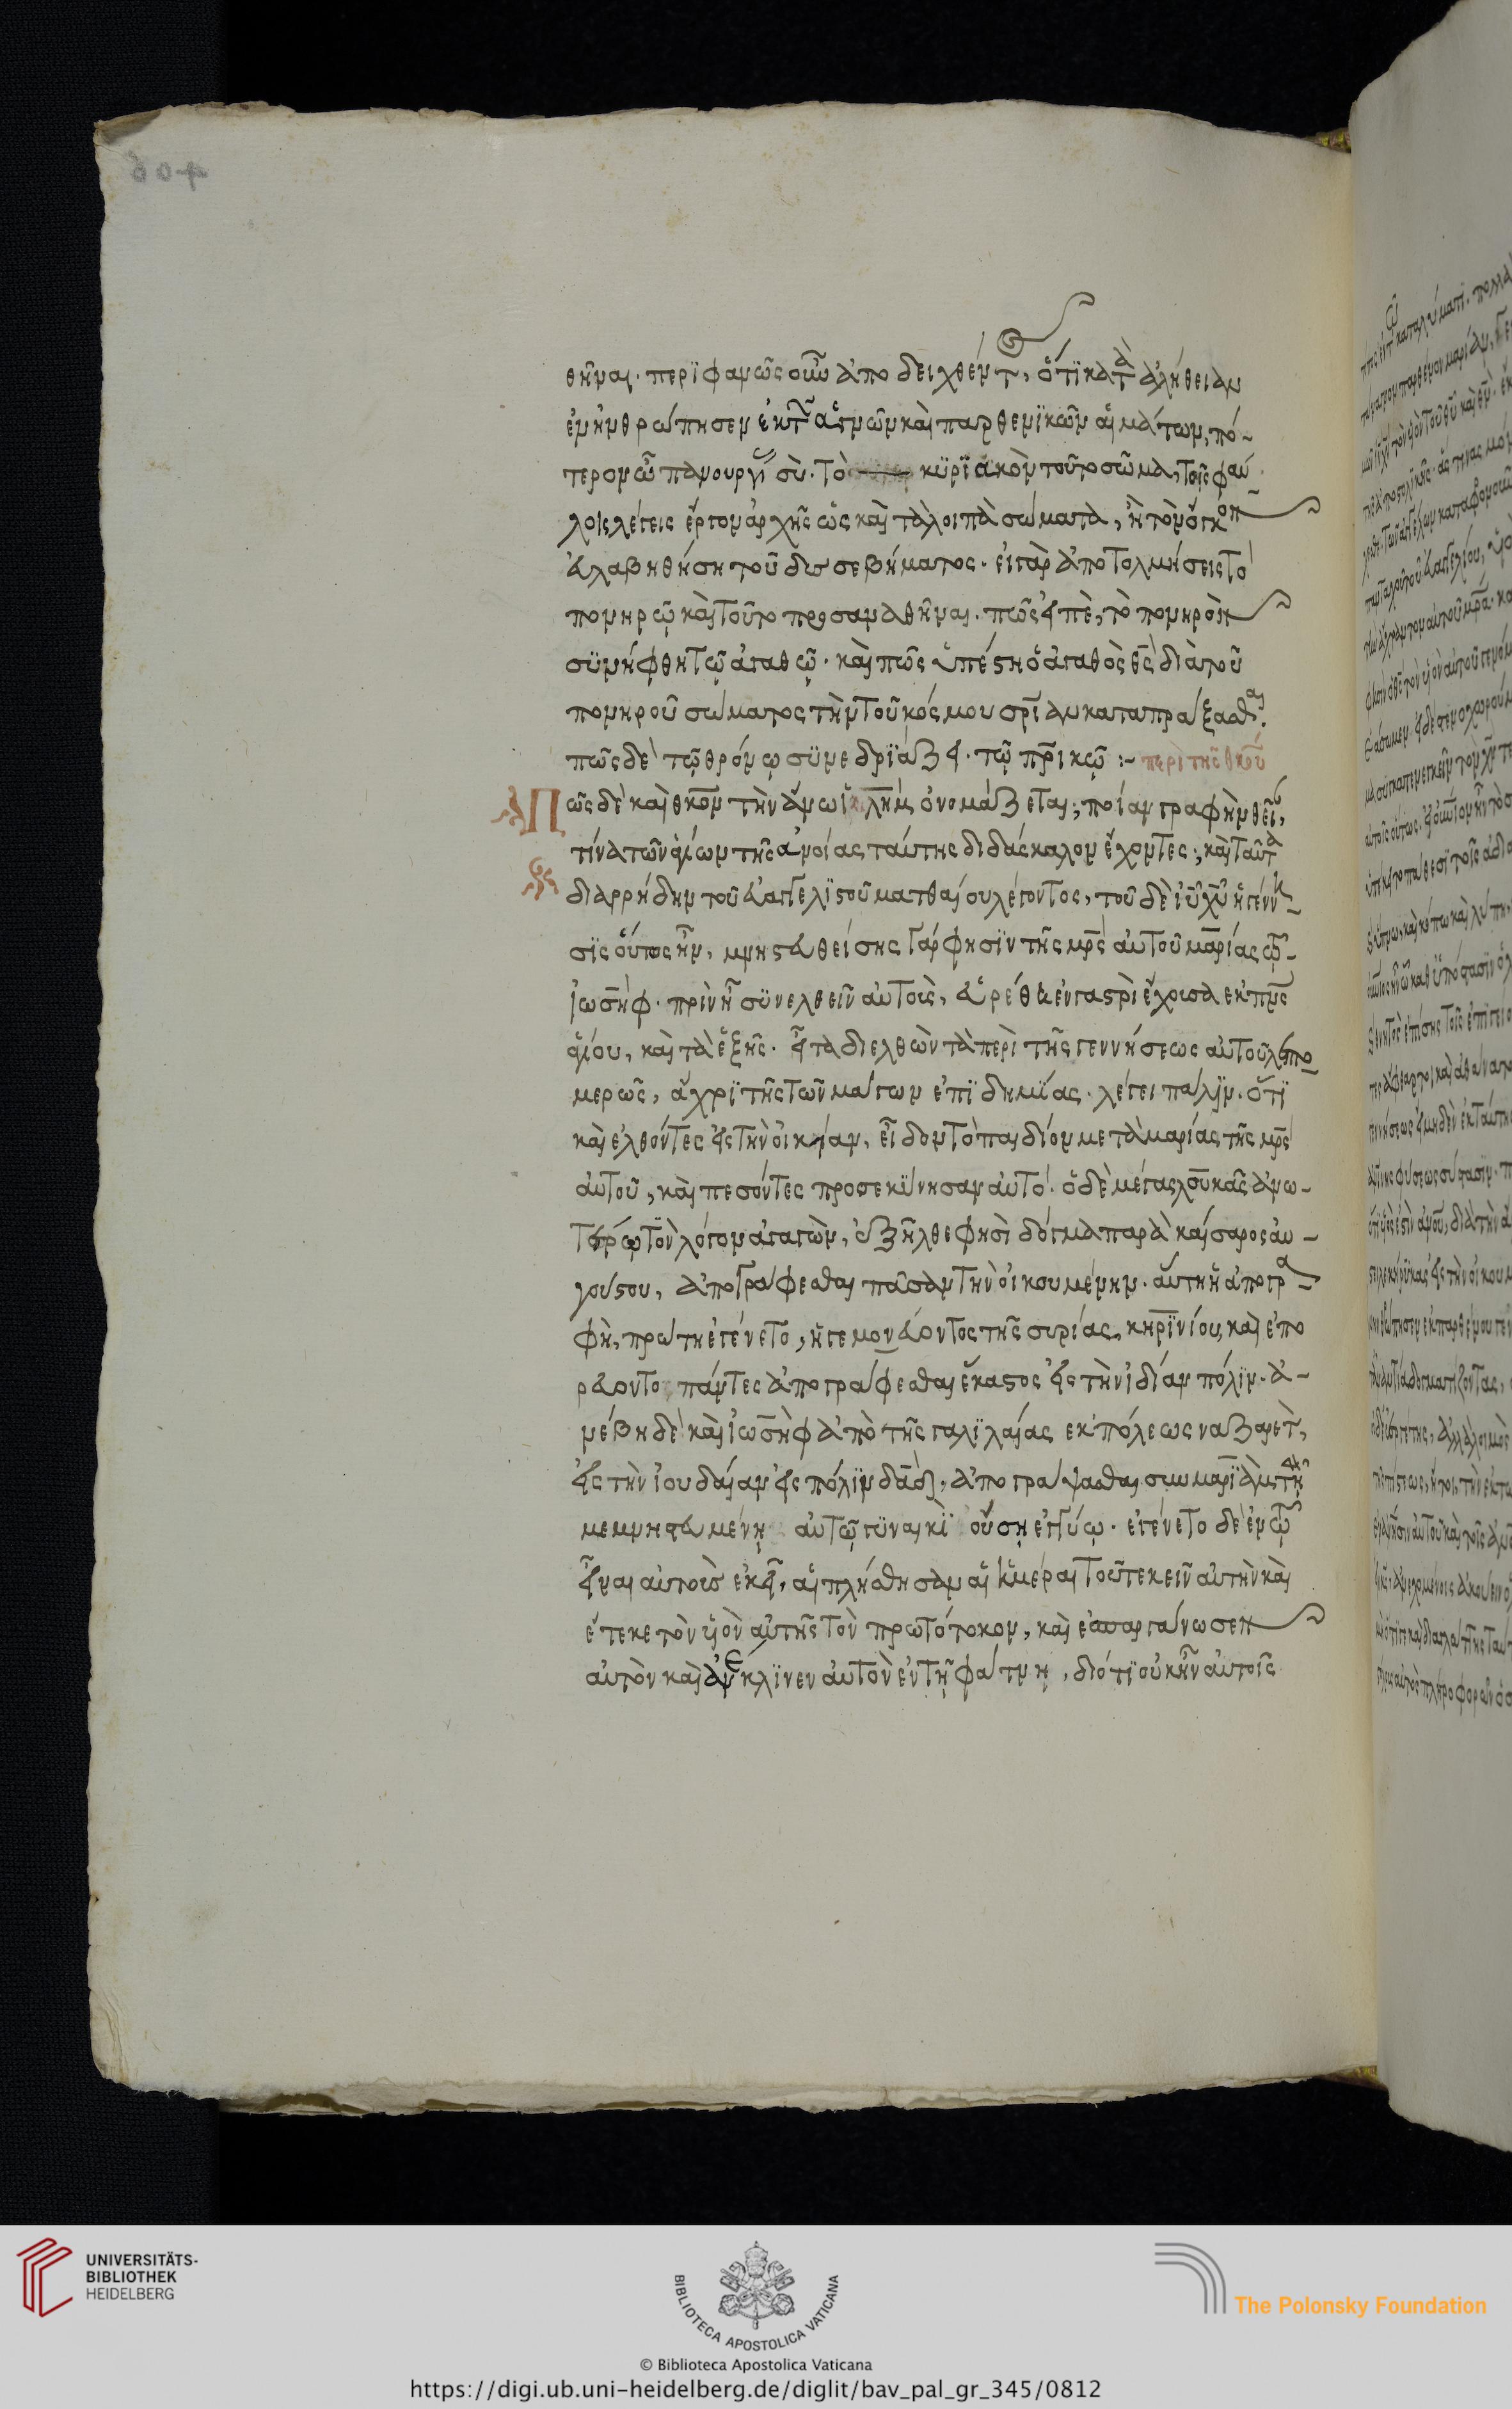 θῆναι. περιφανῶς οὖν ἀποδειχθέντ, ὅτι κατὰ ἀλήθειαν
ἐνηνθρώπησεν ἐκ τ ἁγνῶν καὶ παρθενικῶν αἱμάτων, πό-
τερον ὦ πανοῦργε σὺ. τὸ κυριακὸν τοῦτο σῶμα, τοῖς φαύ-
λοις λέγεις ἔργον ἀρχῆς ὡς καὶ τὰ λοιπὰ σώματα, ἢ τὸν ὄγκον
εὐλαβηθήση τοῦ δυσσεβήματος. εἰ γὰρ ἀποτολμήσεις τὸ
πονηρῷ καὶ τοῦτο προσαναθῆναι. πῶς εἰπὲ, τὸ πονηρὸν
συνήφθη τῷ ἀγαθῷ. καὶ πῶς ὑπέστη ὁ ἀγαθὸς θς διὰ τοῦ
πονηροῦ σώματος τὴν τοῦ κόσμου σρίαν καταπράξασθαι.
πῶς δὲ τῷ θρόνῳ συνεδριάζει. τῷ πρικῷ :- περὶ τῆς θκου
Πῶς δὲ καὶ θκον τὴν ἄνω ιλημ ὀνομάζεται; ποίαν γραφὴν θείαν,
τίνα τῶν ἁγίων τῆς ἀνοίας ταύτης διδάσκαλον ἔχοντες; καὶ ταῦτα
διαρρήδην τοῦ εὐαγγελιστοῦ ματθαίου λέγοντος, τοῦ δὲ ιυ χυ ἡ γέννη-
σις οὕτως ἦν, μνηστευθείσης γάρ φησιν τῆς μρς αὐτοῦ μαρίας τῷ
ἰωσὴφ. πρὶν ἢ συνελθεῖν αὐτοὺς, εὑρέθη ἐν γαστρὶ ἔχουσα ἐκ πνς
ἁγίου, καὶ τὰ ἑξῆς. εἶτα διελθὼν τὰ περὶ τῆς γεννήσεως αὐτοῦ λεπτο-
μερῶς, ἄχρι τῆς τῶν μάγων ἐπιδημίας. λέγει πάλιν. ὅτι
καὶ ἐλθόντες εἰς τὴν οἰκίαν, εἶδον τὸ παιδίον μετὰ μαρίας τῆς μρς
αὐτοῦ, καὶ πεσόντες προσεκύνησαν αὐτό. ὁ δὲ μέγας λουκᾶς ἀνω-
τέρω τὸν λόγον ἀγαγὼν, ἐξῆλθε φησὶ δόγμα παρὰ καίσαρος αὐ-
γούστου, ἀπογράφεσθαι πᾶσαν τὴν οἰκουμένην. αὕτη ἡ ἀπογρα-
φὴ, πρώτη ἐγένετο, ἡγεμονεύοντος τῆς συρίας, κηρινίου, καὶ ἐπο
ρεύοντο πάντες ἀπογράφεσθαι ἕκαστος εἰς τὴν ἰδίαν πόλιν. ἀ-
νέβη δὲ καὶ ἰωσὴφ ἀπὸ τῆς γαλιλαίας ἐκ πόλεως ναζαρέτ,
εἰς τὴν ἰουδαίαν εἰς πόλιν δαδ, ἀπογράψασθαι συν μαριὰμ τῇ
μεμνηστευμένῃ αὐτῷ γυναικὶ οὔσῃ ἐγγύῳ. ἐγένετο δὲ ἐν τῷ
εἶναι αὐτοὺς ἐκεῖ, αἱ πλήσθησαν αἱ ἡμέραι τοῦ τεκεῖν αὐτὴν καὶ
ἔτεκε τὸν υἱὸν αὐτῆς τὸν πρωτότοκον, καὶ ἐσπαργάνωσεν
αὐτὸν καὶ ἀνέκλινεν αὐτὸν ἐν τῇ φάτνῃ, διότι οὐκ ἦν αὐτοῖς
UNIVERSITÄTS-
BIBLIOTHEK
HEIDELBERG
BIBLIOTECA APOSTOLICA VATICANA
The Polonsky Foundation
© Biblioteca Apostolica Vaticana
https://digi.ub.uni-heidelberg.de/diglit/bav_pal_gr_345/0812